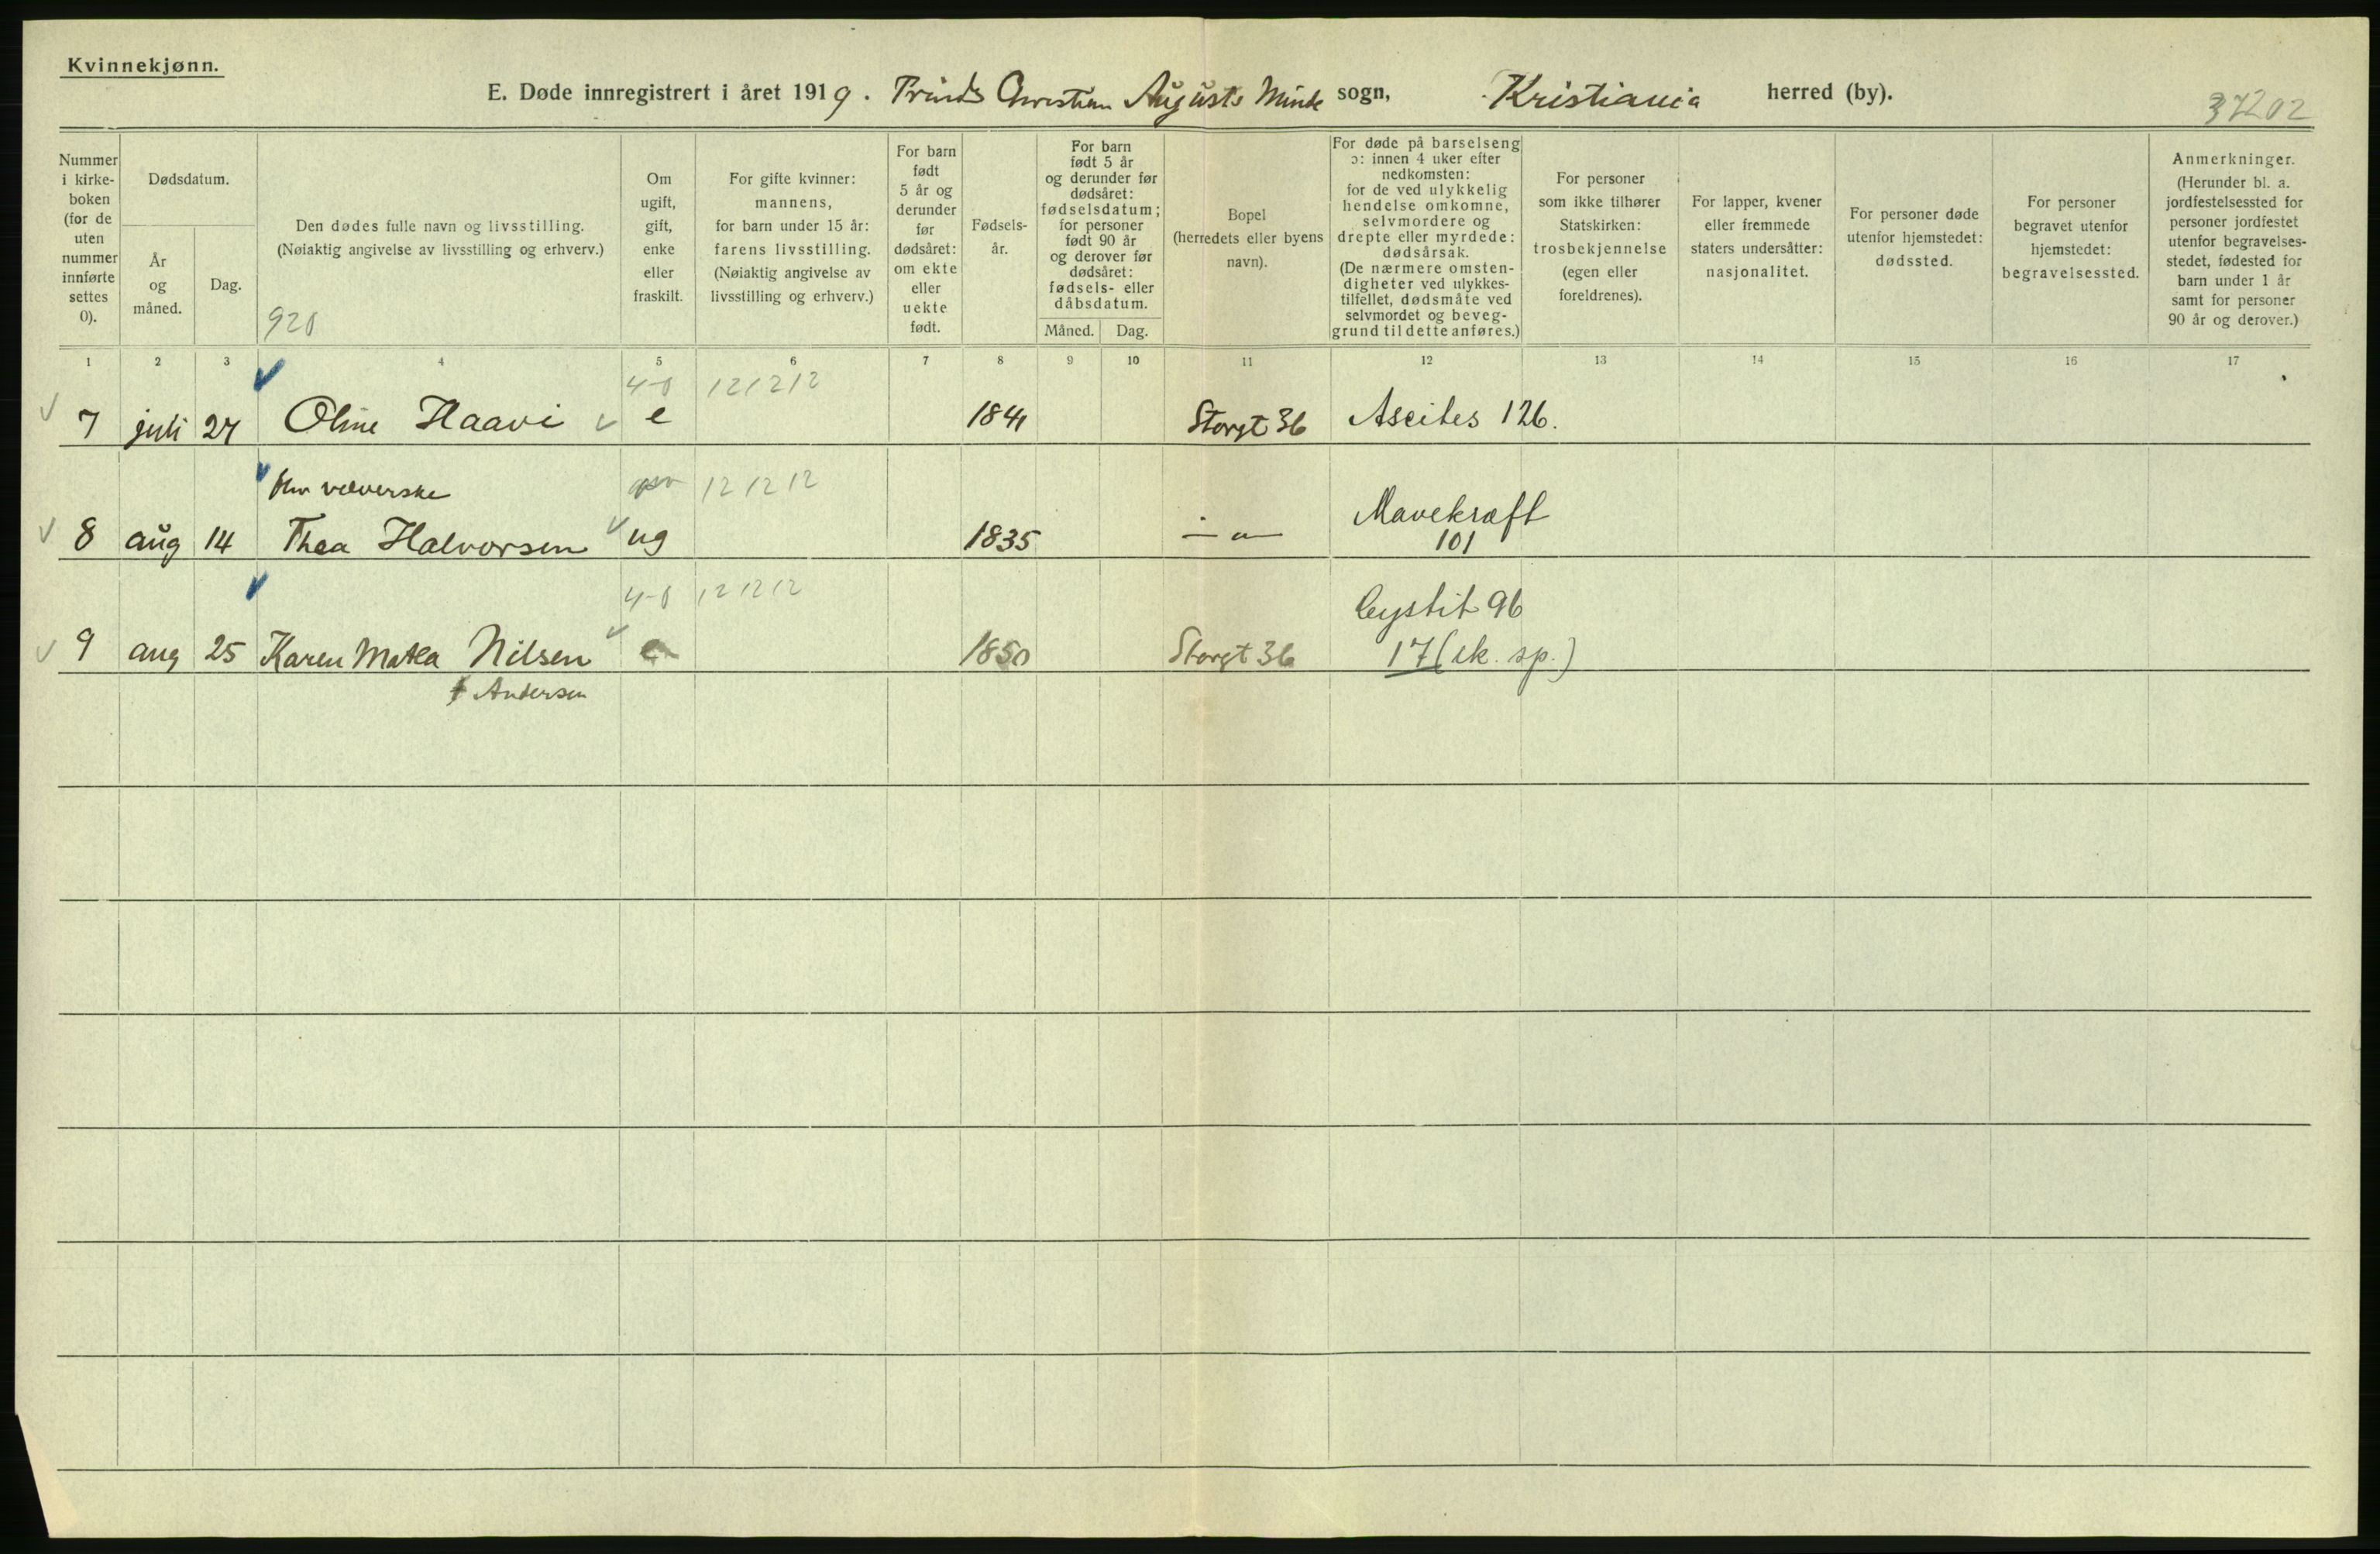 Kvinnekjønn.
E. Døde innregistrert i året 1919. Prinds Christian Augusts Minde sogn, Kristiania herred (by).
37202
Nummer i kirke-boken (for de uten nummer innførte settes 0).
Dødsdatum.
År og måned.
Dag.
Den dødes fulle navn og livsstilling.
(Nøiaktig angivelse av livsstilling og erhverv.)
920
Om ugift, gift, enke eller fraskilt.
For gifte kvinner: mannens, for barn under 15 år: farens livsstilling. (Nøiaktig angivelse av livsstilling og erhverv.)
For barn født 5 år og derunder før dødsåret: om ekte eller uekte født.
Fødsels-år.
For barn født 5 år og derunder før dødsåret: fødselsdatum; for personer født 90 år og derover før dødsåret: fødsels- eller dåbsdatum.
Måned.
Dag.
Bopel (herredets eller byens navn).
For døde på barselseng ɔ: innen 4 uker efter nedkomsten: for de ved ulykkelig hendelse omkomne, selvmordere og drepte eller myrdede: dødsårsak. (De nærmere omsten-digheter ved ulykkes-tilfellet, dødsmåte ved selvmordet og beveg-grund til dette anføres.)
For personer som ikke tilhører Statskirken: trosbekjennelse (egen eller foreldrenes).
For lapper, kvener eller fremmede staters undersåtter: nasjonalitet.
For personer døde utenfor hjemstedet: dødssted.
For personer begravet utenfor hjemstedet: begravelsessted.
Anmerkninger. (Herunder bl. a. jordfestelsessted for personer jordfestet utenfor begravelses-stedet, fødested for barn under 1 år samt for personer 90 år og derover.)
1 2 3 4 5 6 7 8 9 10 11 12 13 14 15 16 17
4-0 121212
7 juli 27 Oline Haavi e 1841 Storgt 36 Ascites 126.
væverske 121212
8 aug 14 Thea Halvorsen ug 1835 — " — Mavekræft
101
4-0 121212
Cystit 96
9 aug 25 Karen Mathea Nilsen e 1850 Storgt 36 17 (sk. sp.)
f Andersen